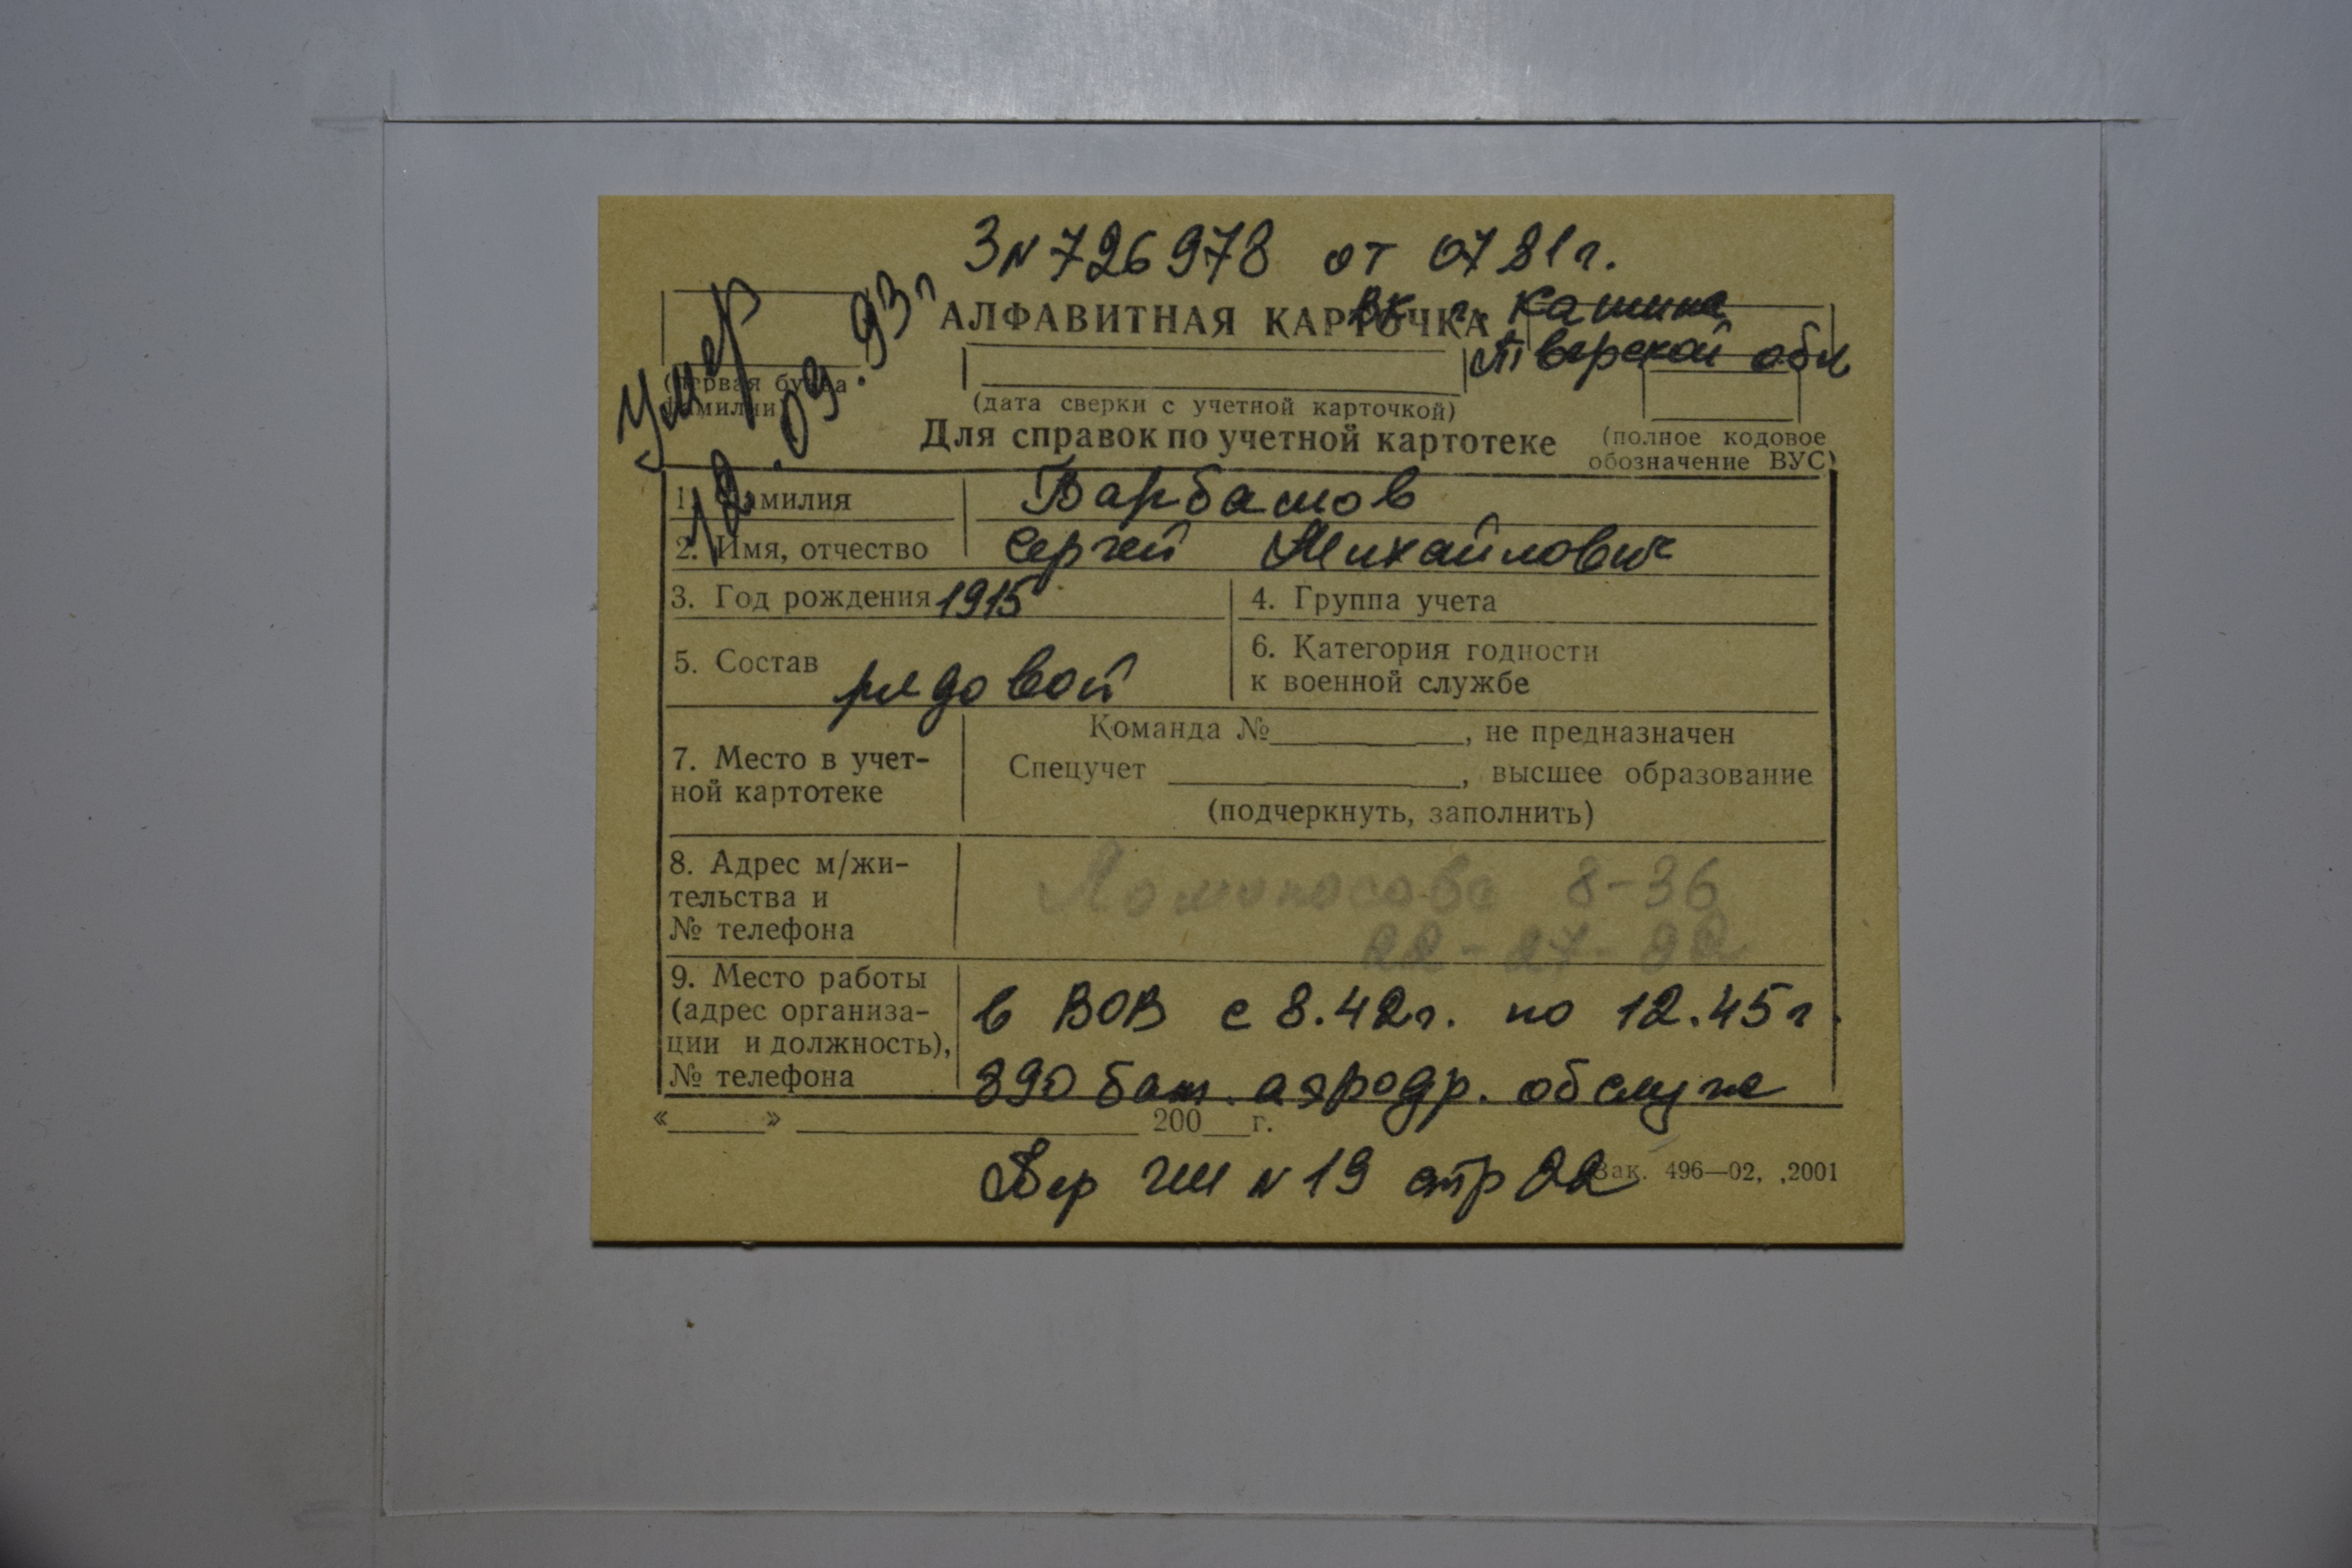 3 N 726978 от 07 81 г.
АЛФАВИТНАЯ КАРТОЧКА
ВК г. Кашина
Тверской обл
умер
12.09.93 г
(первая буква фамилии)
(дата сверки с учетной карточкой)
Для справок по учетной картотеке
(полное кодовое обозначение ВУС)
1. Фамилия Варбасов
2. Имя, отчество Сергей Михайлович
3. Год рождения 1915
4. Группа учета
5. Состав рядовой
6. Категория годности
к военной службе
7. Место в учет-
ной картотеке
Команда №, не предназначен
Спецучет, высшее образование
(подчеркнуть, заполнить)
8. Адрес м/жи-
тельства и
№ телефона
Ломоносова 8-36
9. Место работы
(адрес организа-
ции и должность),
№ телефона
в ВОВ с 8.42г. по 12.45г.
890 бат. аэродр. обслуж
« » 200 г.
стр 22
Зак. 496—02, ,2001